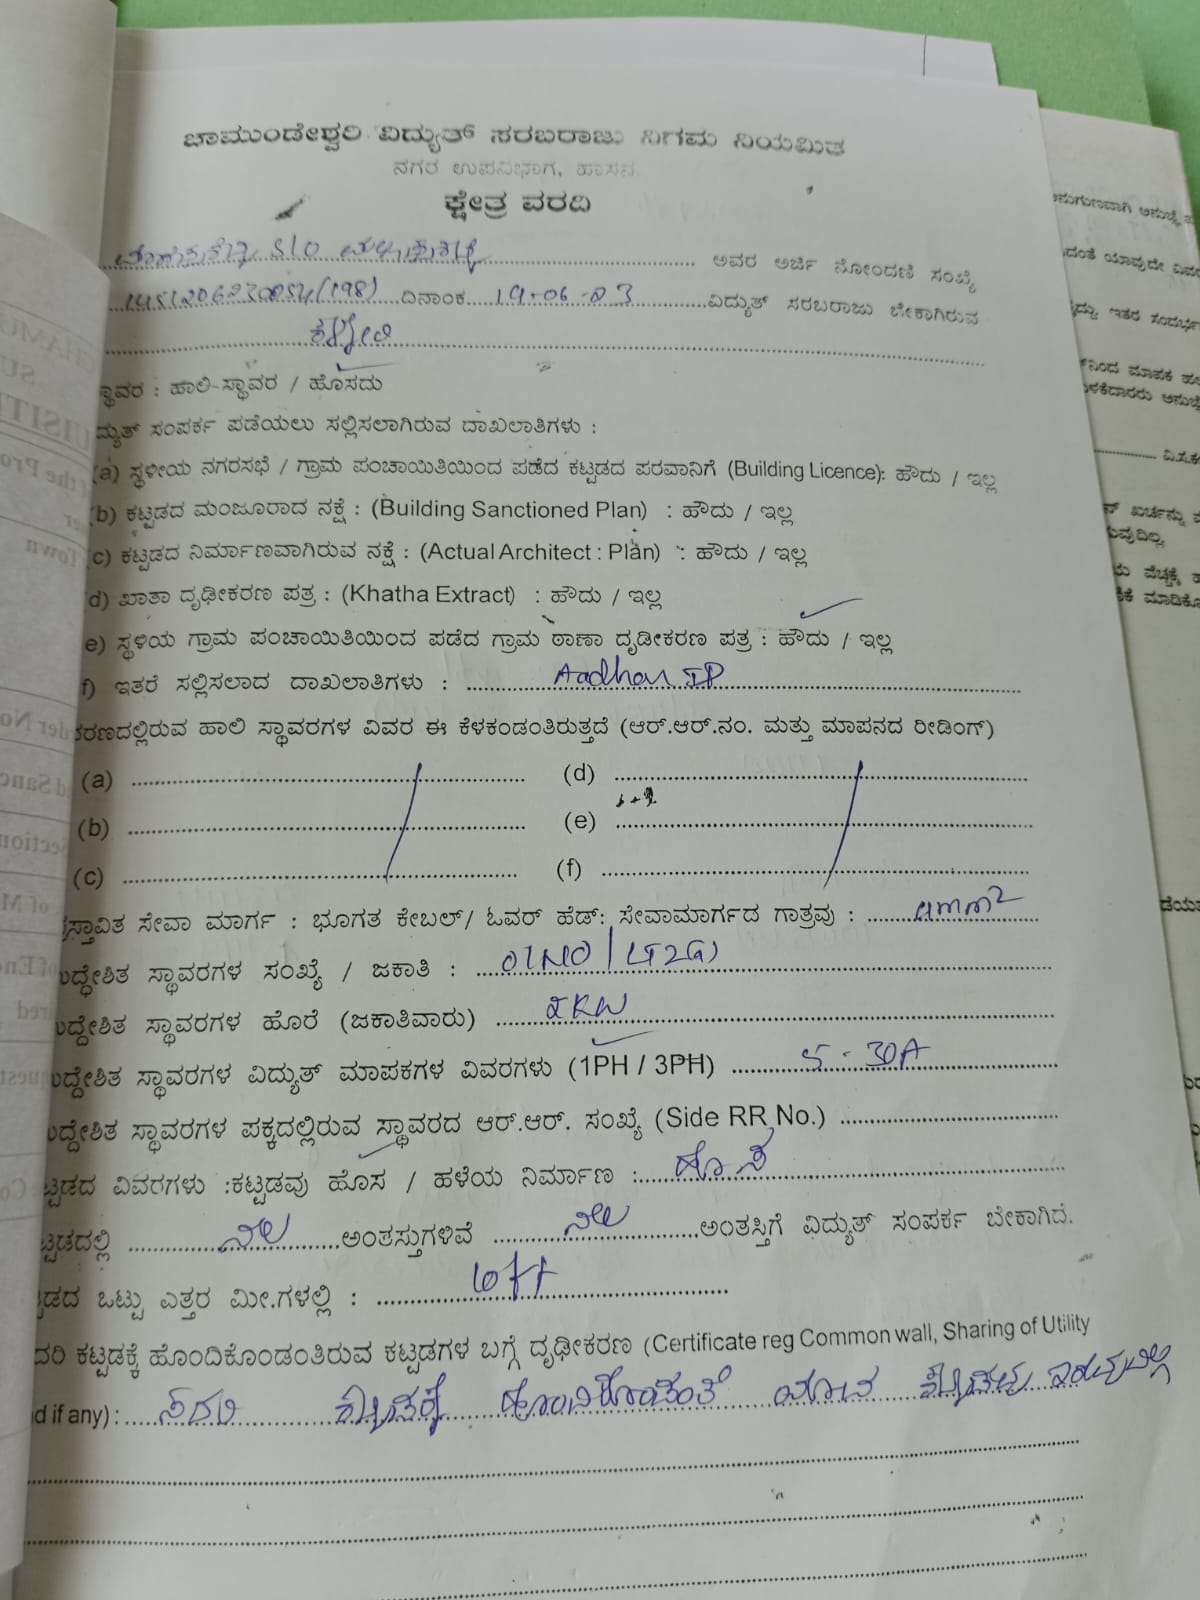 ಚಾಮುಂಡೇಶ್ವರಿ ವಿದ್ಯುತ್ ಸರಬರಾಜು ನಿಗಮ ನಿಯಮಿತ
ನಗರ ಉಪವಿಭಾಗ, ಹಾಸನ.
ಕ್ಷೇತ್ರ ವರದಿ
S/O ಅವರ ಅರ್ಜಿ ನೋಂದಣಿ ಸಂಖ್ಯೆ
(198) ದಿನಾಂಕ 19-06-23 ವಿದ್ಯುತ್ ಸರಬರಾಜು ಬೇಕಾಗಿರುವ
ಸ್ಥಾವರ : ಹಾಲಿ ಸ್ಥಾವರ / ಹೊಸದು
ದ್ಯುತ್ ಸಂಪರ್ಕ ಪಡೆಯಲು ಸಲ್ಲಿಸಲಾಗಿರುವ ದಾಖಲಾತಿಗಳು :
(a) ಸ್ಥಳೀಯ ನಗರಸಭೆ / ಗ್ರಾಮ ಪಂಚಾಯಿತಿಯಿಂದ ಪಡೆದ ಕಟ್ಟಡದ ಪರವಾನಿಗೆ (Building Licence): ಹೌದು / ಇಲ್ಲ
(b) ಕಟ್ಟಡದ ಮಂಜೂರಾದ ನಕ್ಷೆ : (Building Sanctioned Plan) : ಹೌದು / ಇಲ್ಲ
(c) ಕಟ್ಟಡದ ನಿರ್ಮಾಣವಾಗಿರುವ ನಕ್ಷೆ : (Actual Architect : Plan) : ಹೌದು / ಇಲ್ಲ
d) ಖಾತಾ ದೃಢೀಕರಣ ಪತ್ರ : (Khatha Extract) : ಹೌದು / ಇಲ್ಲ
e) ಸ್ಥಳಿಯ ಗ್ರಾಮ ಪಂಚಾಯಿತಿಯಿಂದ ಪಡೆದ ಗ್ರಾಮ ಠಾಣಾ ದೃಡೀಕರಣ ಪತ್ರ : ಹೌದು / ಇಲ್ಲ
f) ಇತರೆ ಸಲ್ಲಿಸಲಾದ ದಾಖಲಾತಿಗಳು : Aadhar ID
ಕರಣದಲ್ಲಿರುವ ಹಾಲಿ ಸ್ಥಾವರಗಳ ವಿವರ ಈ ಕೆಳಕಂಡಂತಿರುತ್ತದೆ (ಆರ್.ಆರ್.ನಂ. ಮತ್ತು ಮಾಪನದ ರೀಡಿಂಗ್)
(a) (d)
(b) (e)
(c) (f)
ಸ್ತಾವಿತ ಸೇವಾ ಮಾರ್ಗ : ಭೂಗತ ಕೇಬಲ್/ ಓವರ್ ಹೆಡ್: ಸೇವಾಮಾರ್ಗದ ಗಾತ್ರವು : 4mm²
ುದ್ಧೇಶಿತ ಸ್ಥಾವರಗಳ ಸಂಖ್ಯೆ / ಜಕಾತಿ : 01NO / LT2(a)
ುದ್ದೇಶಿತ ಸ್ಥಾವರಗಳ ಹೊರೆ (ಜಕಾತಿವಾರು)
ುದ್ದೇಶಿತ ಸ್ಥಾವರಗಳ ವಿದ್ಯುತ್ ಮಾಪಕಗಳ ವಿವರಗಳು (1PH / 3PH) 5-30A
ುದ್ದೇಶಿತ ಸ್ಥಾವರಗಳ ಪಕ್ಕದಲ್ಲಿರುವ ಸ್ಥಾವರದ ಆರ್.ಆರ್. ಸಂಖ್ಯೆ (Side RR No.)
ಟ್ಟಡದ ವಿವರಗಳು :ಕಟ್ಟಡವು ಹೊಸ / ಹಳೆಯ ನಿರ್ಮಾಣ : ಹೊಸ
ಟ್ಟಡದಲ್ಲಿ ನೆಲ ಅಂತಸ್ತುಗಳಿವೆ ನೆಲ ಅಂತಸ್ತಿಗೆ ವಿದ್ಯುತ್ ಸಂಪರ್ಕ ಬೇಕಾಗಿದೆ.
ಟ್ಟಡದ ಒಟ್ಟು ಎತ್ತರ ಮೀ.ಗಳಲ್ಲಿ :
ದರಿ ಕಟ್ಟಡಕ್ಕೆ ಹೊಂದಿಕೊಂಡಂತಿರುವ ಕಟ್ಟಡಗಳ ಬಗ್ಗೆ ದೃಢೀಕರಣ (Certificate reg Common wall, Sharing of Utility
d if any) : ಸದರಿ ಕಟ್ಟಡಕ್ಕೆ ಹೊಂದಿಕೊಂಡಂತೆ ಯಾವ ಕಟ್ಟಡವು ಇರುವುದಿಲ್ಲ